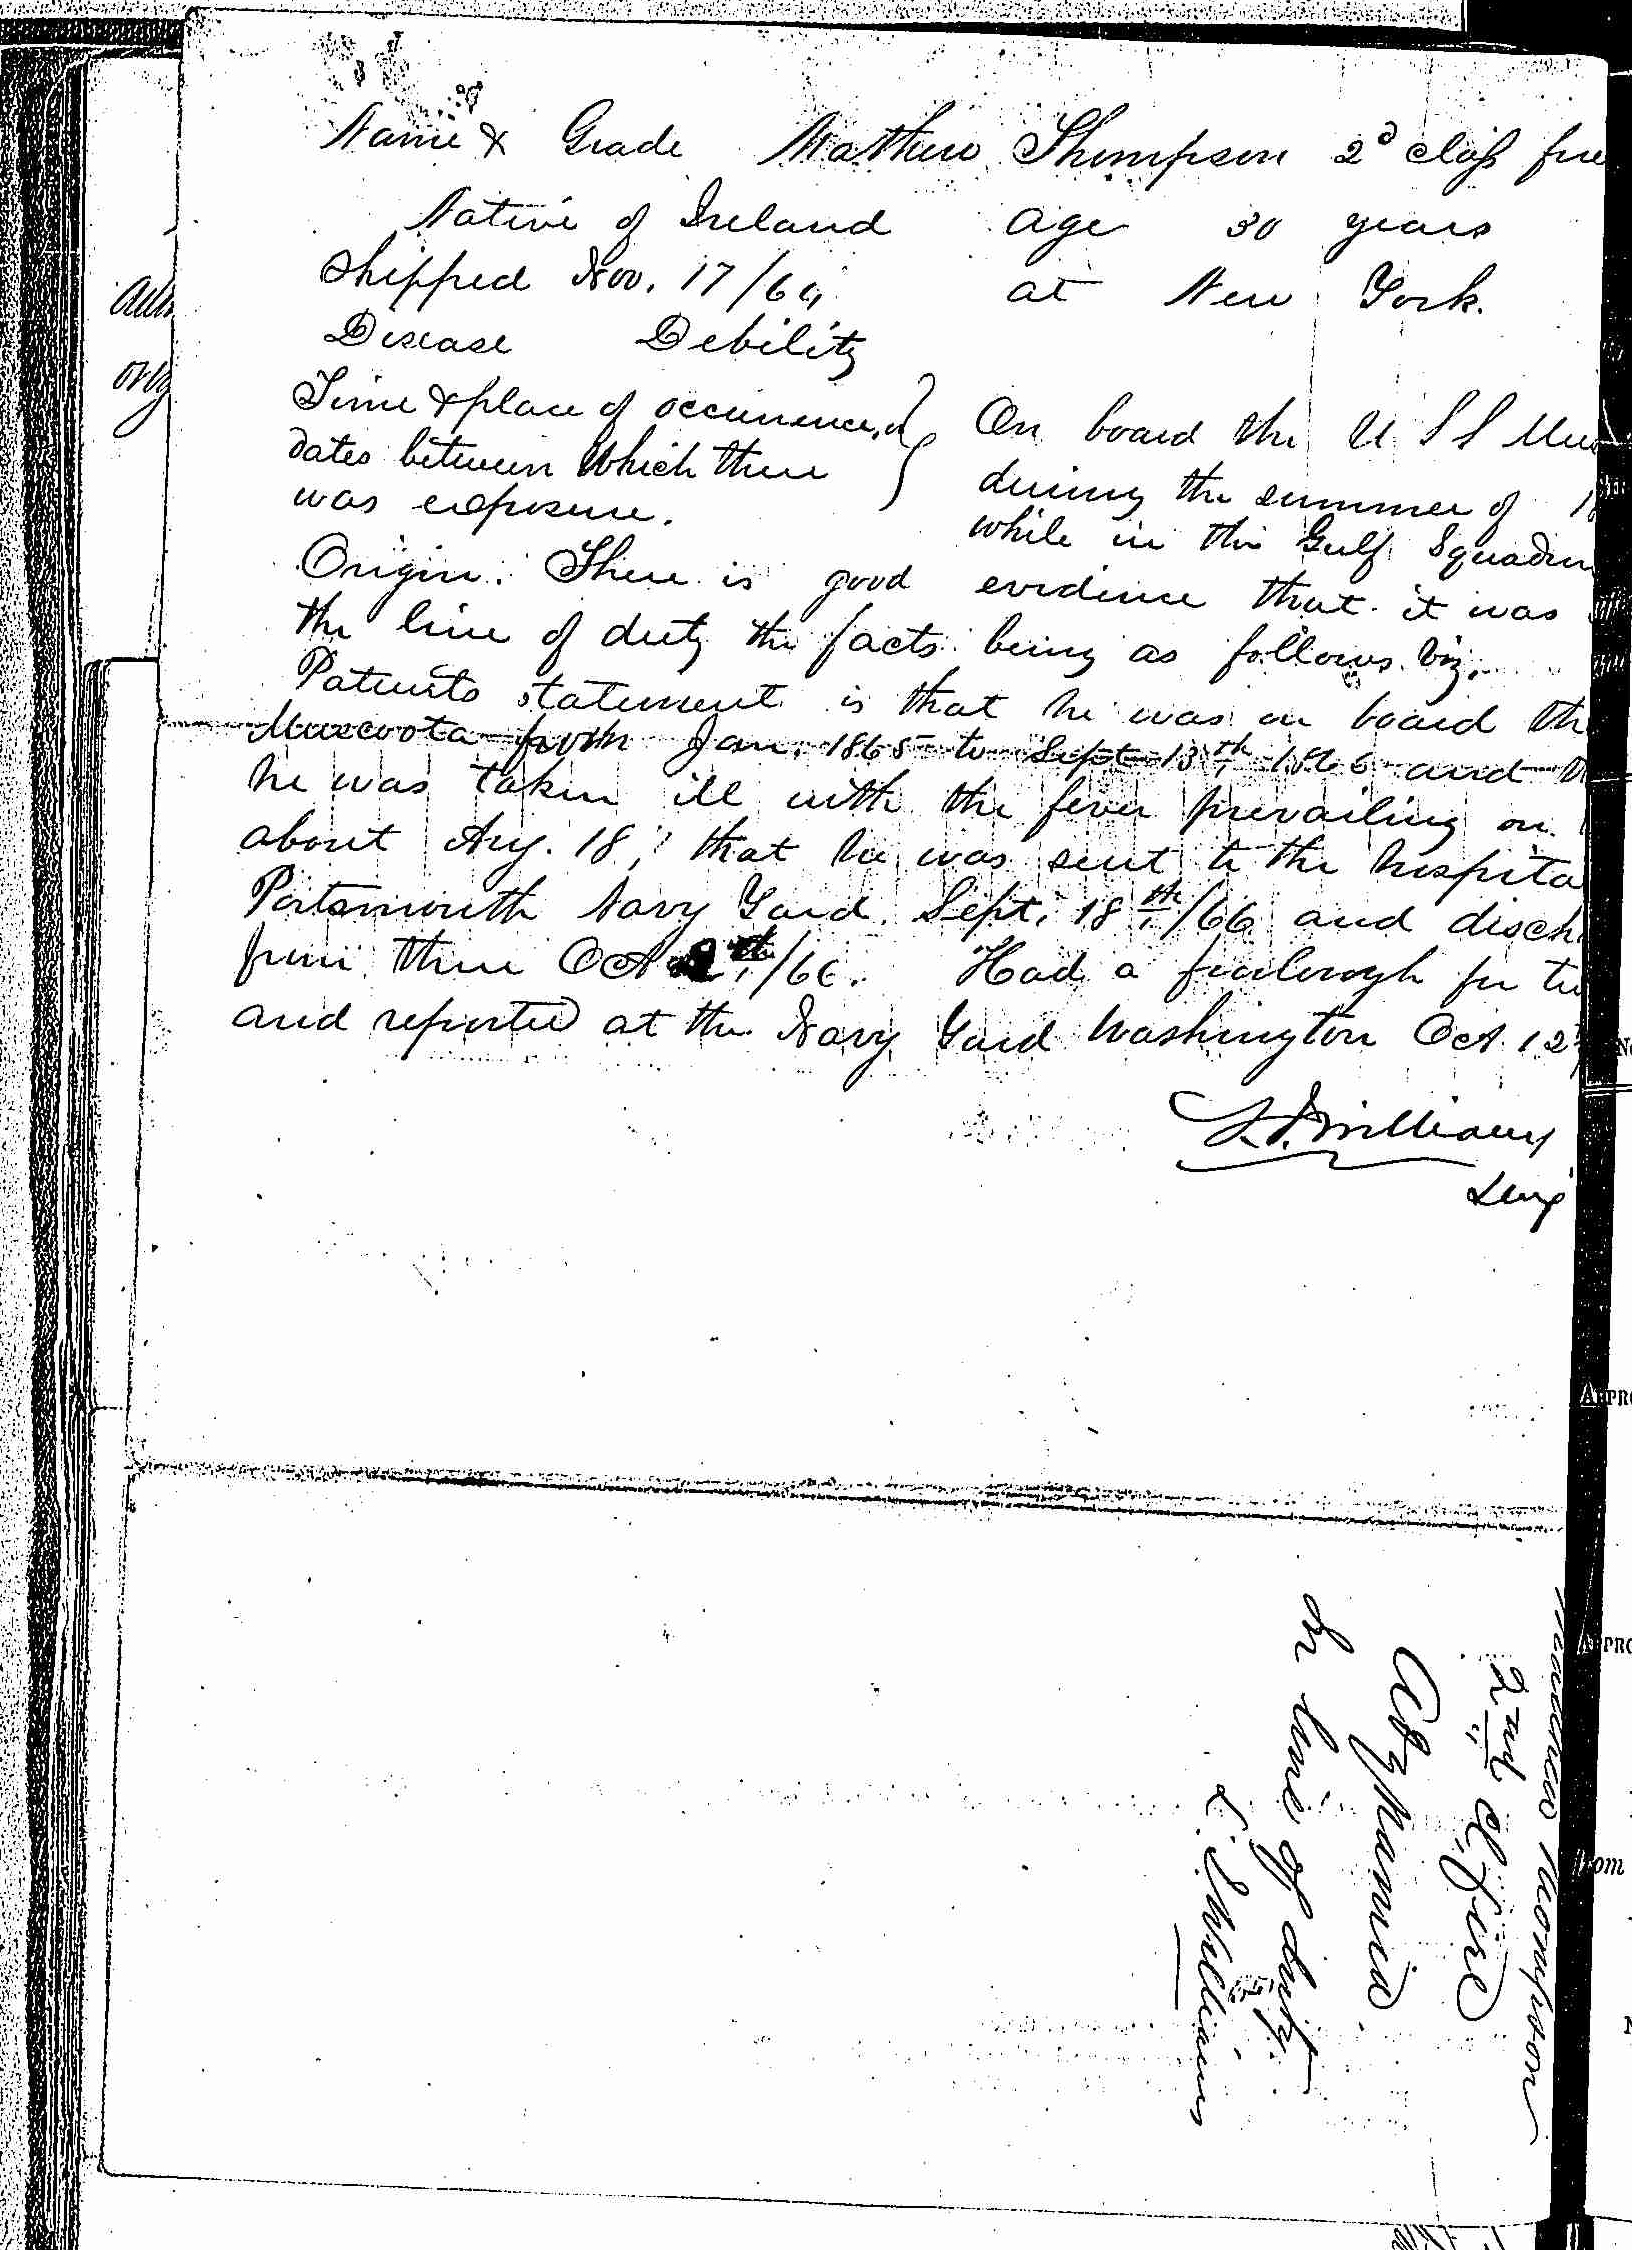 Name & Grade Mathew Thompson 2d class fire
Native of Ireland age 30 years
Shipped Nov. 17/64 at New York.
Disease Debility
Time & place of occurrence, or
dates between which there
was exposure.
On board the U S S Mus
during the summer of 18
while in the Gulf Squadron
Origin. There is good evidence that it was
the line of duty the facts being as follows viz.
Patients statement is that he was on board th
Muscoota from Jan. 1865 to Sept 13th 1866 and
he was taken ill with the fever prevailing on
about Aug. 18, that he was sent to the hospita
Portsmouth Navy Yard Sept. 18th/66 and disch
from there Oct th/66. Had a furlough for
and reported at the Navy Yard Washington Oct. 12
Williams
Surg
Thompson
2nd Cl. Fire
In line of duty.
Williams
APPRO
APPRO
om